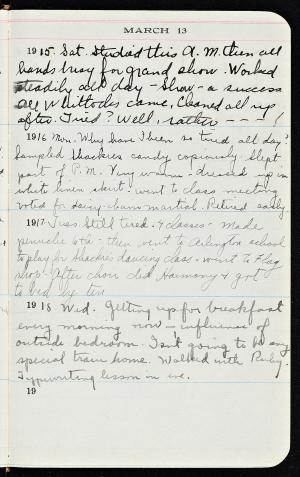 MARCH 13
1915. Sat. Studied this A.M. then all
hands busy for grand show. Worked
steadily all day - Show - a success
All Whittocks came, Cleaned all up
after. Tired? Well, rather - - - !
1916 Mon. Why have I been so tired all day?
Sampled Thackies candy copiously. Slept
part of P.M. Very warm - dressed up in
white linen skirt - went to class meeting
voted for daisy-chain marshal. Retired early.
1917. Tues. Still tired. 4 classes. Made
penuche etc - then went to Arlington school
to play for Thackies dancing class - went to Flag
show. After choir did Harmony & got
to bed by ten
1918 Wed. Getting up for breakfast
every morning now - influence of
outside bedroom. Isn't going to be any
special train home. Walked with
Typewriting lesson in eve.
19